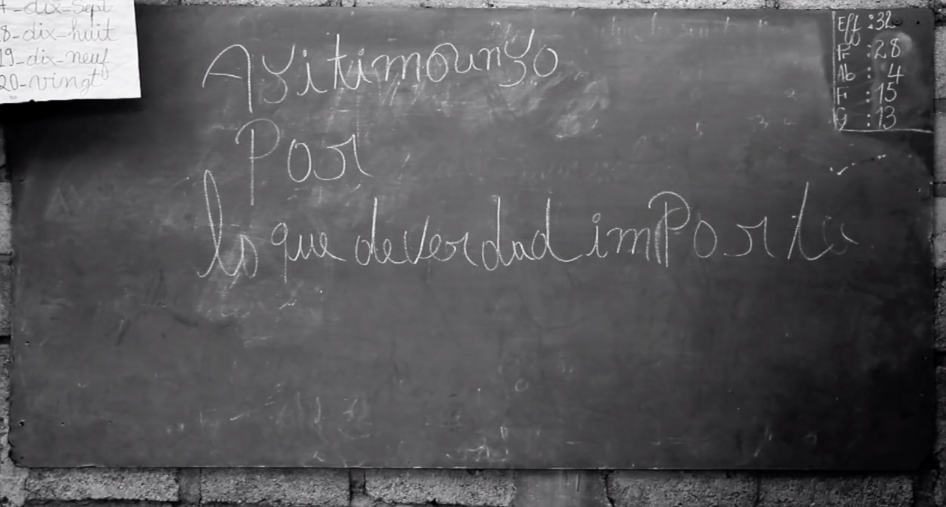 17-dix-sept
18-dix-huit
19-dix-neuf
20-vingt
Ayitimounyo
Por
lo que de verdad importa
Eff :32
Pr :28
Ab : 4
F :15
G :13